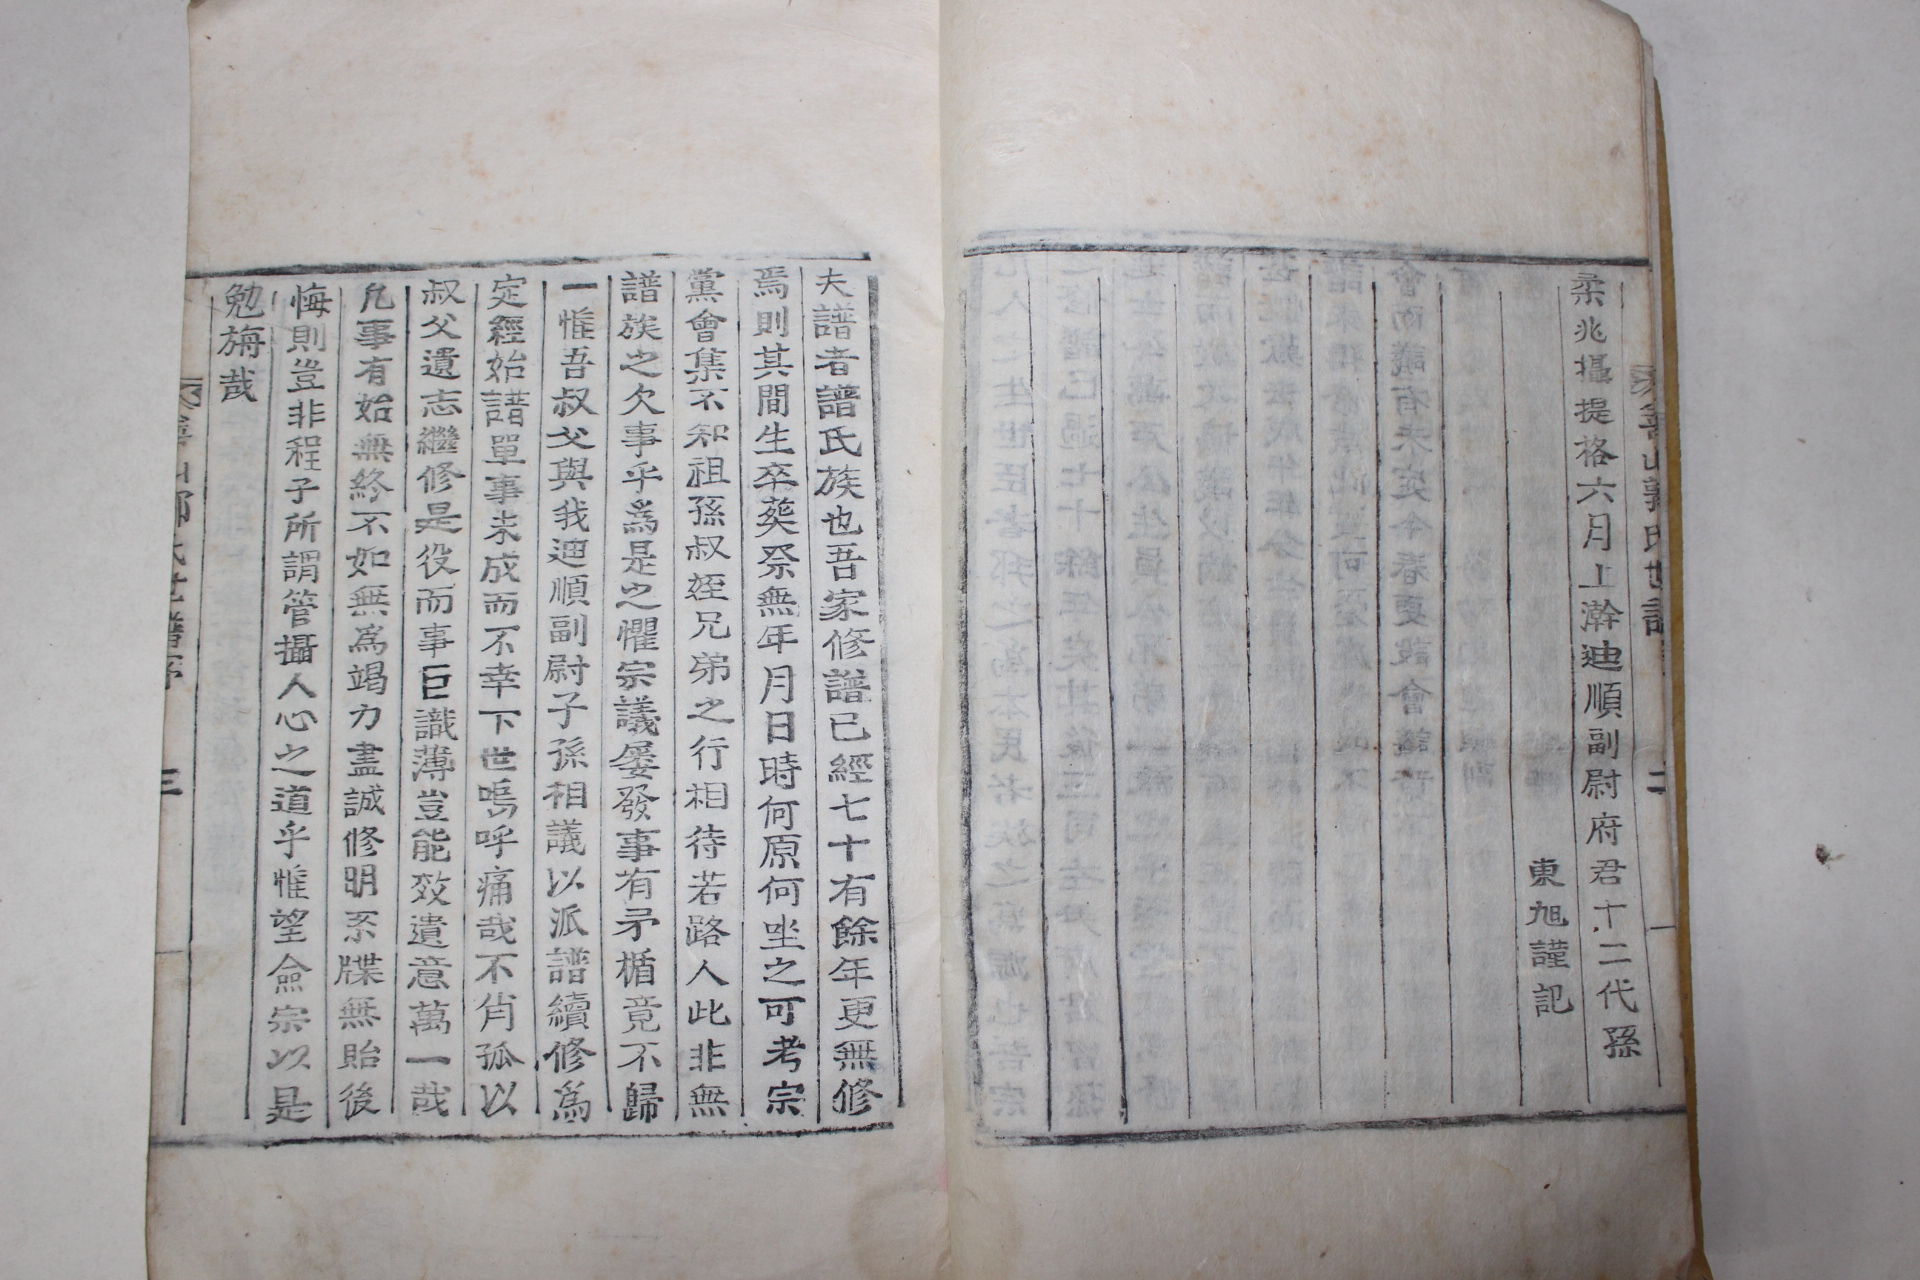 柔兆攝提格六月上澣迪順副尉府君十二代孫
東旭謹記
夫譜者譜氏族也吾家修譜已經七十有餘年更無修
焉則其間生卒葬祭無年月日時何原何坐之可考宗
黨會集不知祖孫叔姪兄弟之行相待若路人此非無
譜族之欠事乎爲是之懼宗議屡發事有矛楯竟不歸
一惟吾叔父與我迪順副尉子孫相議以派譜續修爲
定經始譜單事未成而不幸下世嗚呼痛哉不肖孤以
叔父遺志繼修是役而事巨識薄豈能效遺意萬一哉
凡事有始無終不如無爲竭力盡誠修明系牒無貽後
悔則豈非程子所謂管攝人心之道乎惟望僉宗以是
勉旃哉
氏世譜
二
三